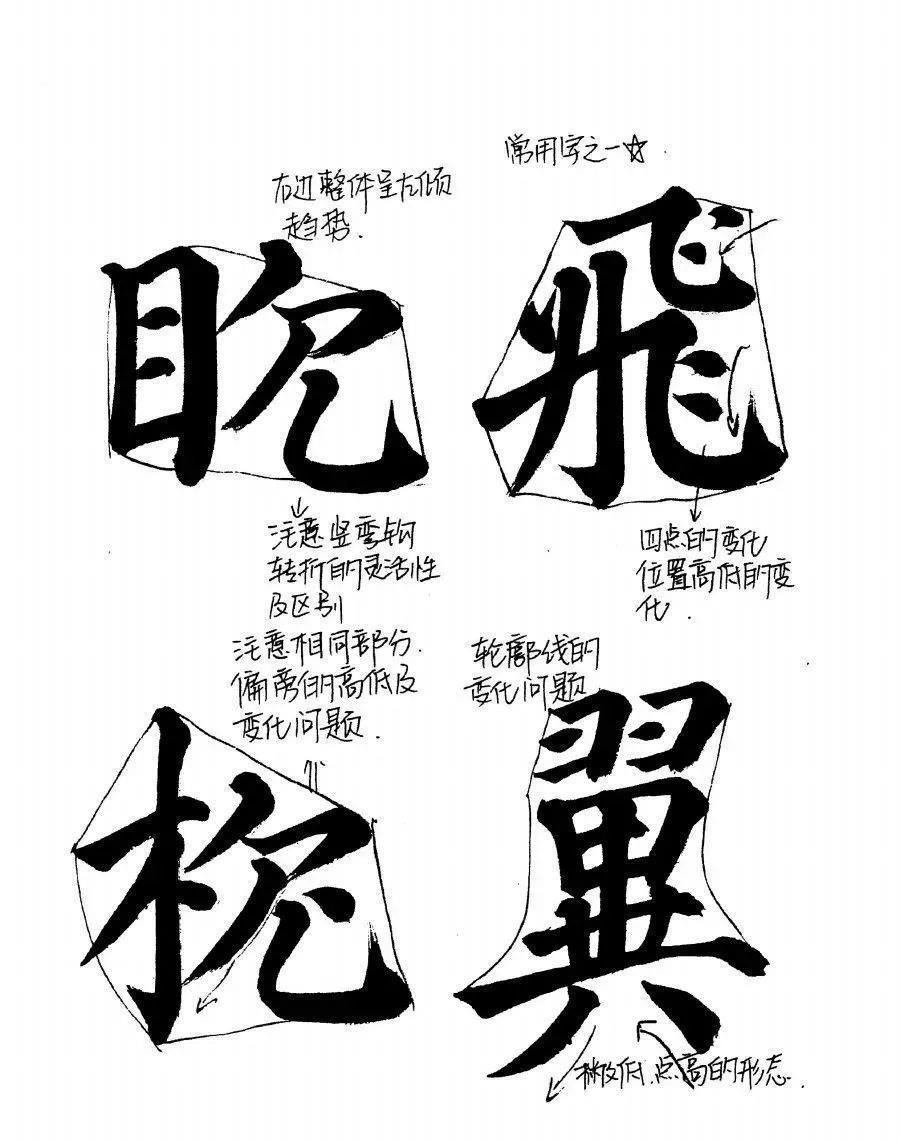 常用字之一☆.
右边整体呈左倾
趋势.
飛
注意竖弯钩
转折的灵活性
及区别
四点的变化
位置高低的变
化.
注意相同部分.
偏旁的高低及
变化问题.
轮廓线的
变化问题
翼
撇低.点高的形态.